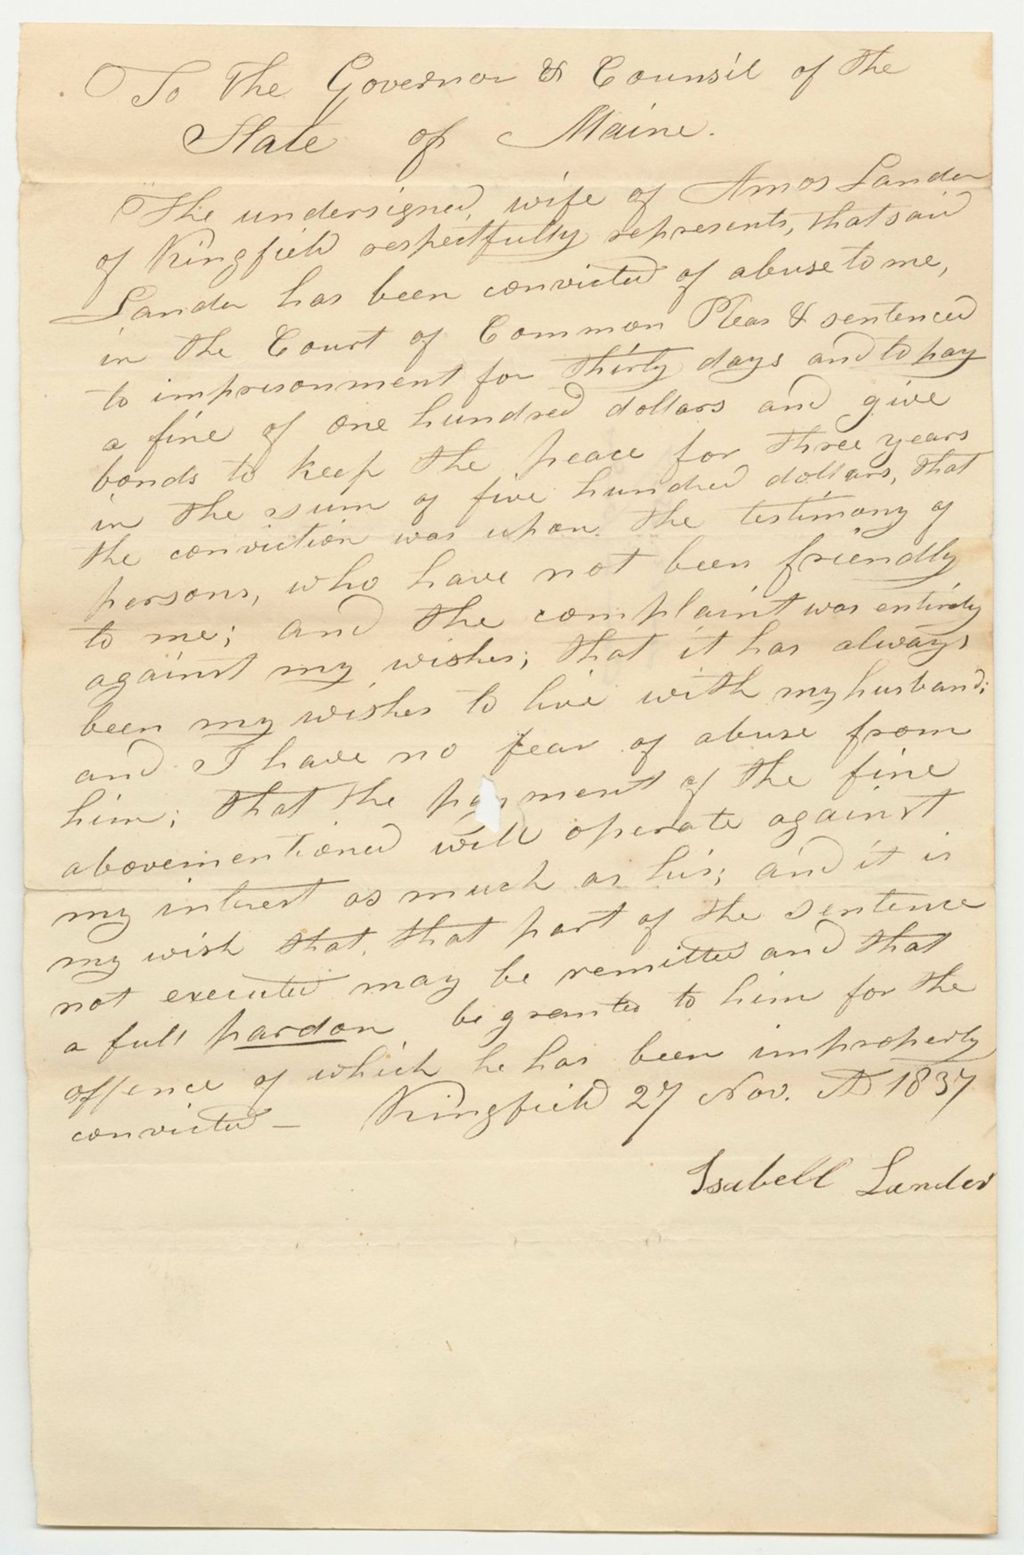 To the Governor & Counsil of the
State of Maine.
The undersigned, wife of Amos Lander
of Kingfield respectfully represents, that said
Lander has been convicted of abuse to me,
in the Court of Common Pleas & sentenced
to imprisonment for thirty days and to pay
a fine of one hundred dollars and give
bonds to keep the peace for three years
in the sum of five hundred dollars, that
the conviction was upon the testimony of
persons, who have not been friendly
to me; and the complaint was entirely
against my wishes; that it has always
been my wishes to live with my husband;
and I have no fear of abuse from
him; that the payment of the fine
abovementioned will operate against
my interest as much as his; and it is
my wish that, that part of the sentence
not executed may be remitted and that
a full pardon be granted to him for the
offence of which he has been improperly
convicted – Kingfield 27 Nov. AD 1837
Isabell Lander